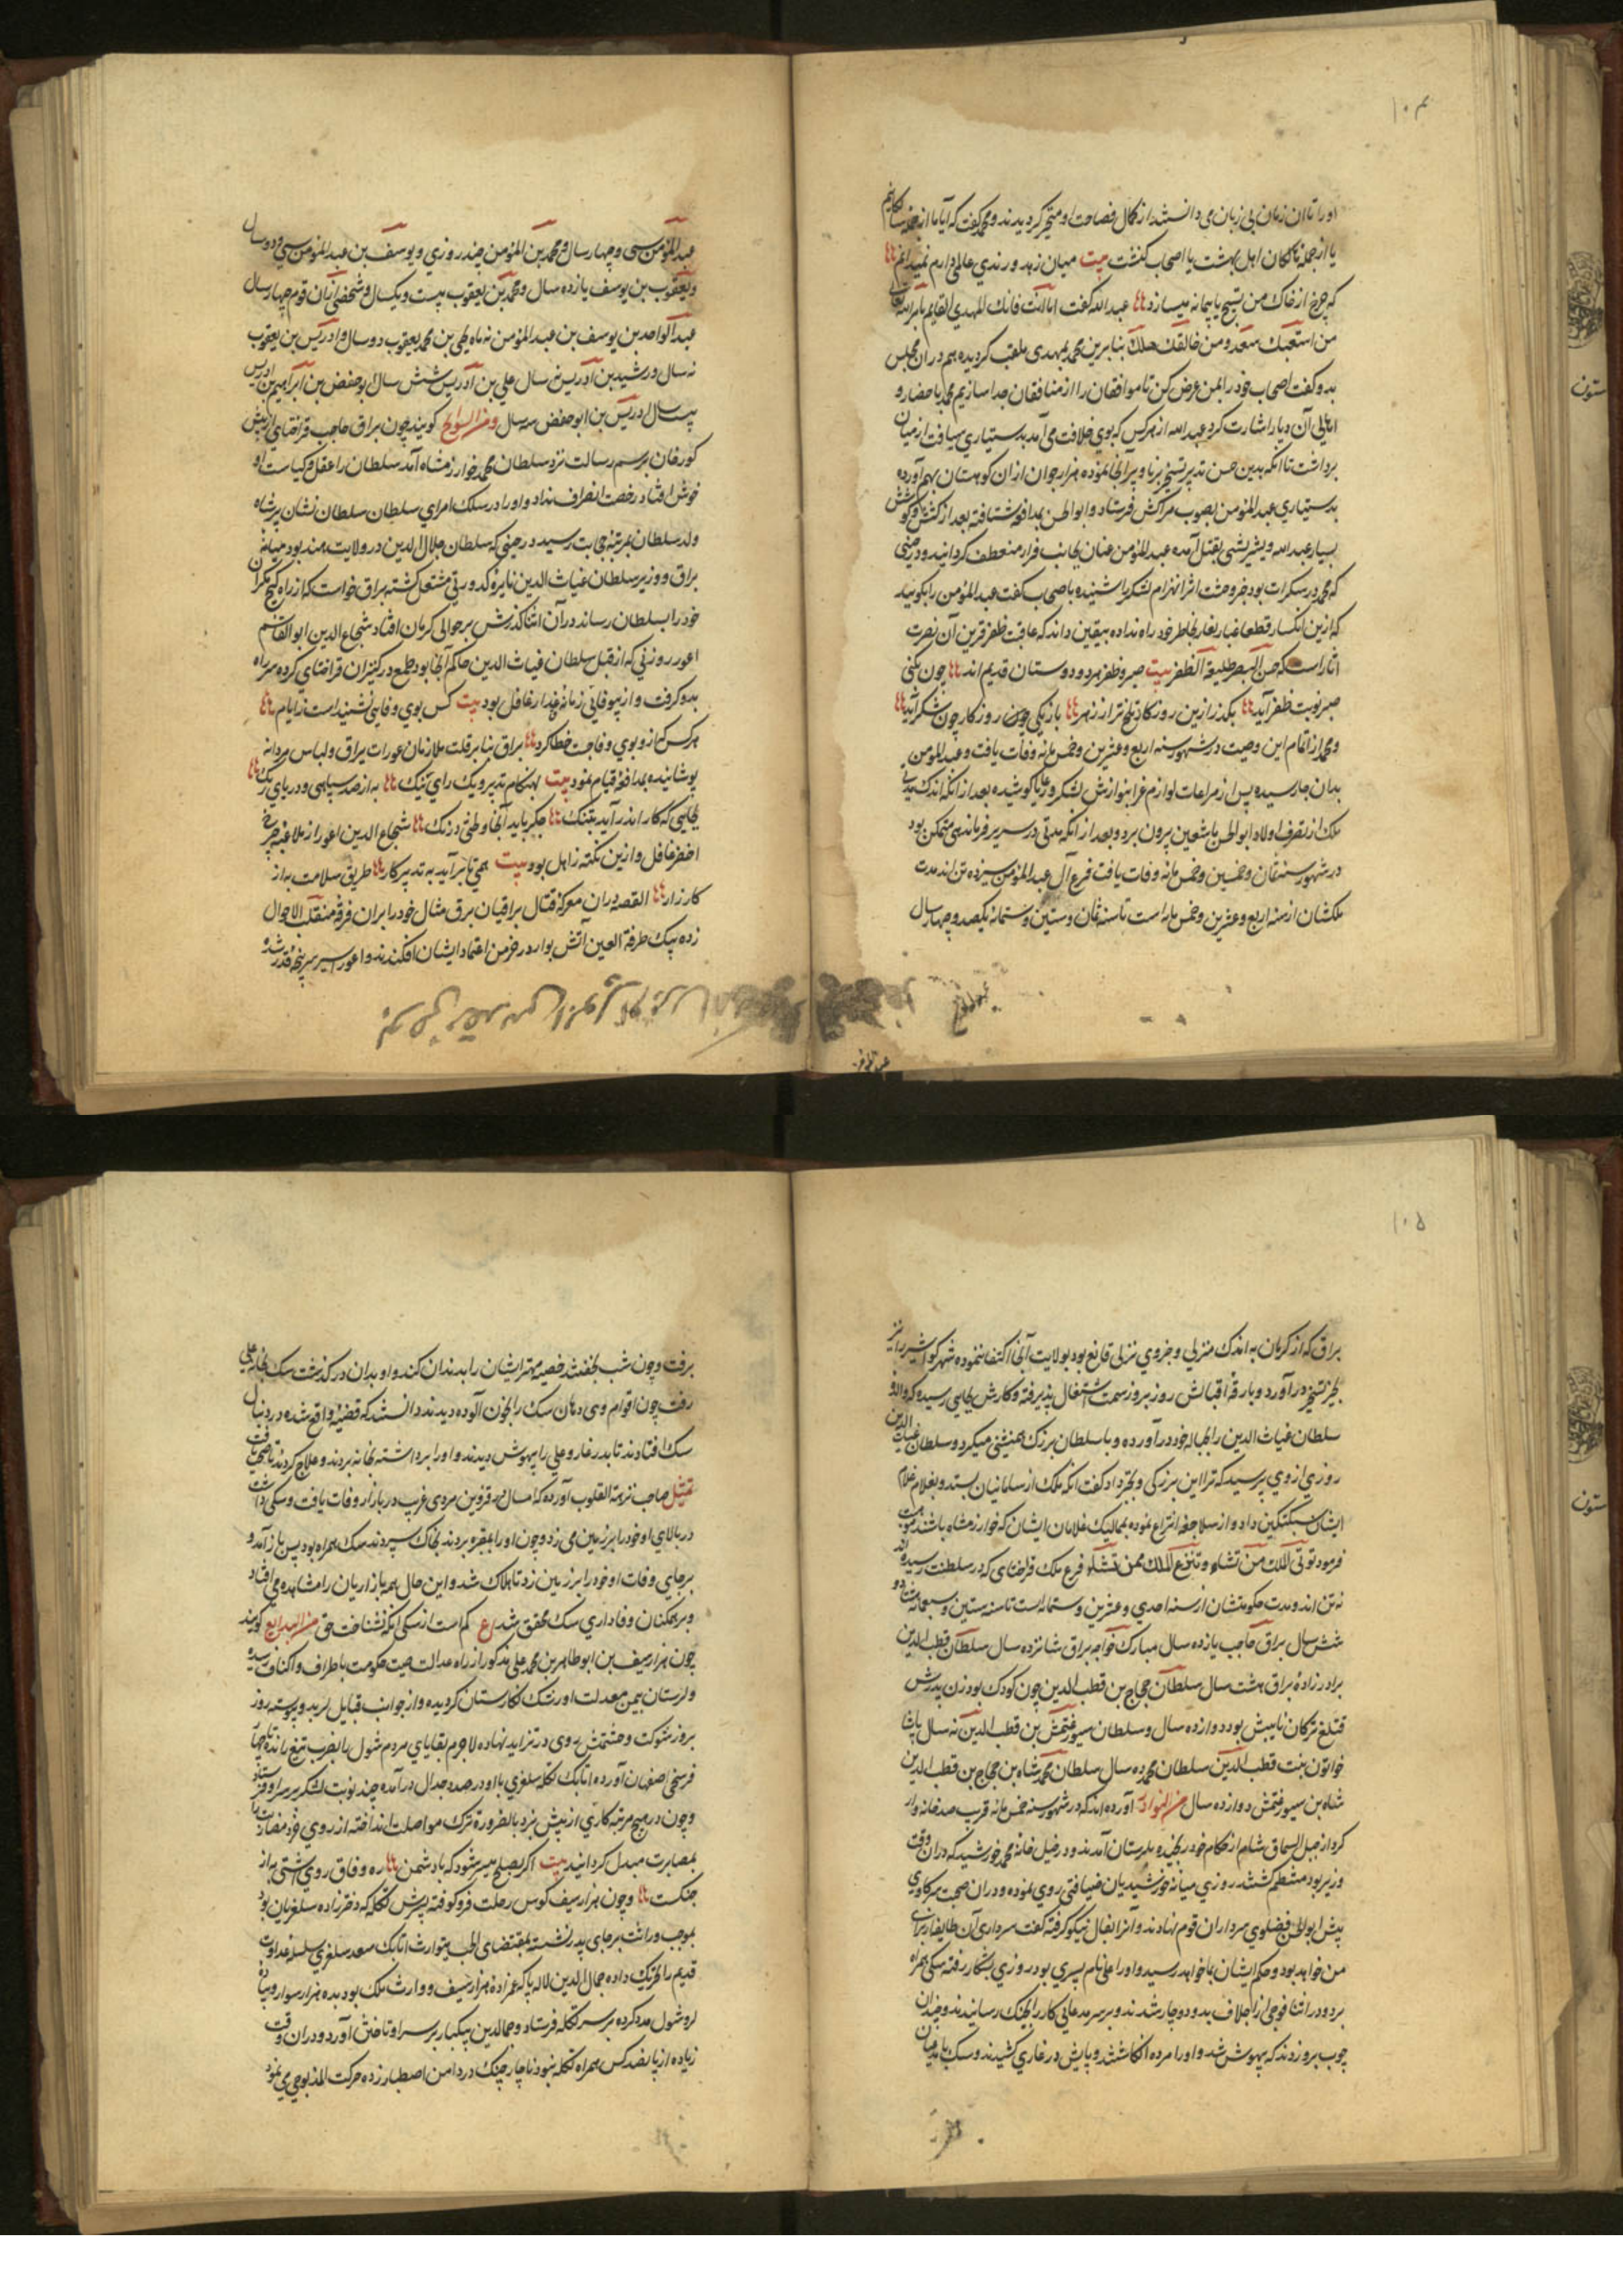 ۱۰۴
او را تا ان زمان بی زبان می دانستند از کمال فصاحت او متحیر کردیدند و محمد کفت که آیا ما از جمله
یا از جمله تا کان اهل بهشت یا اصحاب کنشت بیت میان زهد و رندی عالمی دارم نمیدانم
که چرخ از خاک من تسبیح یا پیمانه میسازد عبد الله کفت اما انت فانک المهدی القایم بامر الله
من استعبک سعد و من خالفک هلک بنابرین محمد بمهدی ملقب کردیده هم در ان مجلس
بدو کفت اصحاب خود را بمن عرض کن تا موافقان را از منافقان جدا سازیم محمد باحضار و
اهالی آن دیار اشارت کرد عبد الله از هر کس که بوی خلافت می آمد بدستیاری سیافت از میان
برداشت تا انکه بدین حسن تدبیر تسخیر برنا و پیر آنجا نموده هزار جوان از ان کوهستان بهم آورده
بدستیاری عبد المؤمن بصوب مراکش فرستاد و ابو الحسن بمدافعه شتافته بعد از کشش و کوشش
بسیار عبد الله ویشریشی بقتل آمده عبد المؤمن عنان بجانب فرار منعطف کردانید و در حینی
که محمد در سکرات بود خبر وحشت اثر انهزام لشکر را شنیده باصحاب کفت عبد المؤمن را بکویید
که ازین انکسار قطعا غبار بخاطر خود راه نداده بیقین داند که عاقبت ظفر قرین آن نصرت
اثار است که حسن الصبر طلیعة الظفر بیت صبر و ظفر هر دو دوستان قدیم اند چون کنی
صبر نوبت ظفر آید بکذر ازین روزکار تلخ تر از زهر باز یکی چون روزکار چون شکر آید
و محمد از اتمام این وصیت در شهور سنه اربع و عشرین و خمس مائه وفات یافت و عبد المؤمن
بدان جا رسیده پس از مراعات لوازم عزا بنوازش لشکر و رعایا کوشیده بعد از انکه اندک
ملک از تصرف اولاد ابو الحسن باشعین بیرون برد و بعد از انکه مدتی در سریر فرماندهی متمکن بود
در شهور سنه ثمان و خمسین و خمس مائه وفات یافت فرع آل عبد المؤمن سیزده تن اند مدت
ملکشان از سنه اربع و عشرین و خمس مایه است تا سنه ثمان و ستین و ستمائه یکصد و چهار سال
عبد المؤمن
عبد المؤمن سی و چهار سال و محمد بن المؤمن چند روزی و یوسف بن عبد المؤمن سی و دو سال
و یعقوب بن یوسف یازده سال و محمد بن یعقوب بیست و یکسال و شخصی از ان قوم چهار سال
عبد الواحد بن یوسف بن عبد المؤمن نه ماه یحیی بن محمد یعقوب دو سال و ادریس بن یعقوب
نه سال و رشید بن ادریس نه سال علی بن ادریس شش سال ابو حفص بن ابراهیم بن ادریس
بیست سال ادریس بن ابو حفص سه سال و من السوانح کویند چون براق حاجب قراختای از پیش
کورخان برسم رسالت نزد سلطان محمد خوارزمشاه آمد سلطان را عقل و کیاست او
خوش افتاد رخصت انصراف نداد و او را در سلک امرای سلطان سلطان نشان پیر شاه
ولد سلطان بمرتبه حجابت رسید در حینی که سلطان جلال الدین در ولایت هند بود میانه
براق و وزیر سلطان غیاث الدین نایره کدورتی مشتعل کشته براق خواست که از راه کیج مکران
خود را بسلطان رساند در آن اثنا کذرش بر حوالی کرمان افتاد شجاع الدین ابو القاسم
اعور روزنی که از قبل سلطان غیاث الدین حاکم آنجا بود طمع در کنیزان قراختای کرده سر راه
بدو کرفت و از بیوفایی زمانه غدار غافل بود بیت کس بوی وفایی نشنیدست ز ایام
هر کس که ازو بوی وفا جست خطا کرد براق بنا بر قلت ملازمان عورات یراق و لباس مردانه
پوشانیده بمدافعه قیام نمود بیت بهنکام تدبیر و یک رای نیک به از صد سپاهی و دریای ریک
بجایی که کار اندر آید بتنک چکیر باید آنجا وطنی درنک شجاع الدین اعور از ملاعبه چرخ
اخضر غافل و ازین نکته زاهل بود بیت همی تا بر آید به تدبیر کار طریق سلامت به از
کارزار القصه در ان معرکه قتال براقیان برق مثال خود را بر ان فرقه منقلب الاحوال
زده بیک طرفة العین آتش بوار در خرمن اعتماد ایشان افکندند و اعور اسیر سرپنجه قدر شد و
۱۰۵
براق که از کرمان به اندک منزلی و جزوی نزلی قانع بود بولایت آنجا اکتفا ننموده شهر کواشیر را نیز
بحیز تسخیر در آورد و بارقه اقبالش روز بروز سمت اشتغال پذیرفته و کارش بجایی رسیده که والده
سلطان غیاث الدین را بحباله خود در آورده و با سلطان بزرک همنشنی میکرد و سلطان غیاث الدین
روزی از وی پرسید که ترا این بزرکی و بختر داد کفت انکه ملک از سامانیان بستد و بغلام غلام
ایشان سبکتکین داد و از سلاجقه انتزاع نموده بممالیک غلامان ایشان که خوارزمشاه باشند
فرمود تؤتی الملک من تشاء و تنزع الملک ممن تشاء فرع ملک قراختای که در سلطنت رسیده اند
نه تن اند و مدت حکومتشان از سنه احدی و عشرین و ستمائه است تا سنه ستین و سبعمائه
شش سال براق حاجب یازده سال مبارک خواجه براق شانزده سال سلطان قطب الدین
برادر زادهٔ براق هشت سال سلطان حجاج بن قطب الدین چون کودک بود زن پدرش
قتلغ ترکان نایبش بود دوازده سال و سلطان سیورغتمش بن قطب الدین نه سال پاشا
خاتون بنت قطب الدین سلطان محمد ده سال سلطان محمد شاه بن حجاج بن قطب الدین
شاه بن سیورغتمش دوازده سال من النوادر آورده اند که در شهور سنه خمس مائه قرب صد خانه وار
کرد از جبل السماق شام از حکام خود رنجیده بلرستان آمدند و در خیل خانه محمد خورشید که در ان وقت
وزیر بود منتظم کشتند روزی میانه خورشیدیان ضیافتی روی نموده و در ان صحبت سر کاوی
پیش ابو الحسن فضلوی سرداران قوم نهادند و آنرا بفال نیکو کرفته کفت سرداری آن طایفه
من خواهد بود و حکم ایشان بما خواهد رسید و او را علی نام پسری بود روزی بشکار رفته سکی همراه
برد و در اثنا فوجی از اجلاف بدو دوچار شدند و بر سر مدعایی کار را بجنک رسانیدند و چندان
چوب برو زدند که بیهوش شد و او را مرده انکاشتند و پایش در غاری کشیدند و سک
برفت و چون شب بخفتند خصیه مهتر ایشان را بدندان کند و او بدان در کذشت سک بخانه علی
رفت چون اقوام وی دهان سک را بخون آلوده دیدند دانستند که قضیه واقع شده در دنبال
سک افتادند تا بدر غار و علی را بیهوش دیدند و او را برداشته بخانه بردند و علاج کردند تا صحت یافت
تمثیل صاحب نزهة القلوب آورده که امسال در قزوین مردی غریب در بازار وفات یافت و سکی داشت
در بالای او خود را بر زمین می زد و چون او را بمقبره بردند بخاک سپردند سک همراه بود پس باز آمد و
بر جای وفات او خود را بر زمین زد تا هلاک شد و این حال همه بازاریان را مشاهده می افتاد
و بر همکنان وفاداری سک محقق شد ع کم است از سکی انکه نشناخت حق من البدایع کویند
چون هزارسیف بن ابو طاهر بن محمد علی مذکور از راه عدالت صیت حکومت باطراف و اکناف رسیده
و لرستان بیمن معدلت او رشک نکارستان کردیده و از جوانب قبایل لر بدو پیوسته روز
بروز شوکت و حشمتش روی در تزاید نهاده لاجرم بقایای مردم شول را بضرب تیغ رانده تا چهار
فرسخی اصفهان آورده اتابک تکله سلغری با او در صدد جدال در آمده چند نوبت لشکر بر سر او فرستاد
و چون در هیچ مرتبه کاری از پیش نبرد بالضروره ترک مواصلت انداخته از روی خرد مضارت را
بمصاهرت مبدل کردانید بیت اکر بصلح میسر شود که با دشمن ره وفاق روی آشتی به از
جنکست و چون هزارسیف کوس رحلت فرو کوفته پسرش تکله که دختر زاده سلغریان بود
بموجب وراثت بر جای پدر نشست بمقتضای الحب یتوارث اتابک سعد سلغری سلسله عداوت
قدیم را تحریک داده جمال الدین لاله با که عمزادهٔ هزارسیف و وارث ملک بود بده هزار سوار و پیاده
لر و شول مدد کرده بر سر تکله فرستاد و جمالدین بیکبار بر سر او تاختن آورد و در ان وقت
زیاده از پانصد کس همراه تکله نبود ناچار چنک در دامن اصطبار زده حرکت المذبوحی می نمود
ستون
ستون